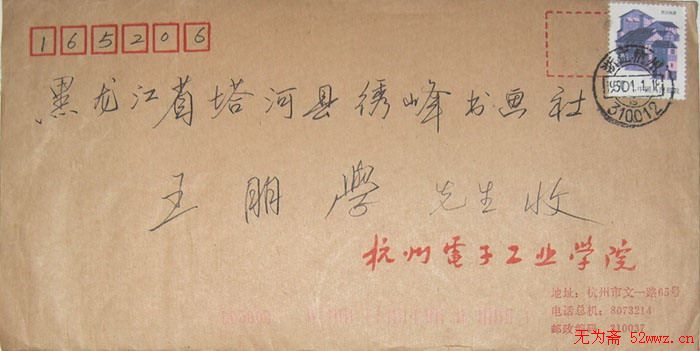 165206
黑龙江省塔河县绣峰书画社
王朋学 先生收
杭州電子工业学院
地址：杭州市文一路65号
电话总机：8073214
邮政编码：310037
310012
无为斋 52wwz.cn